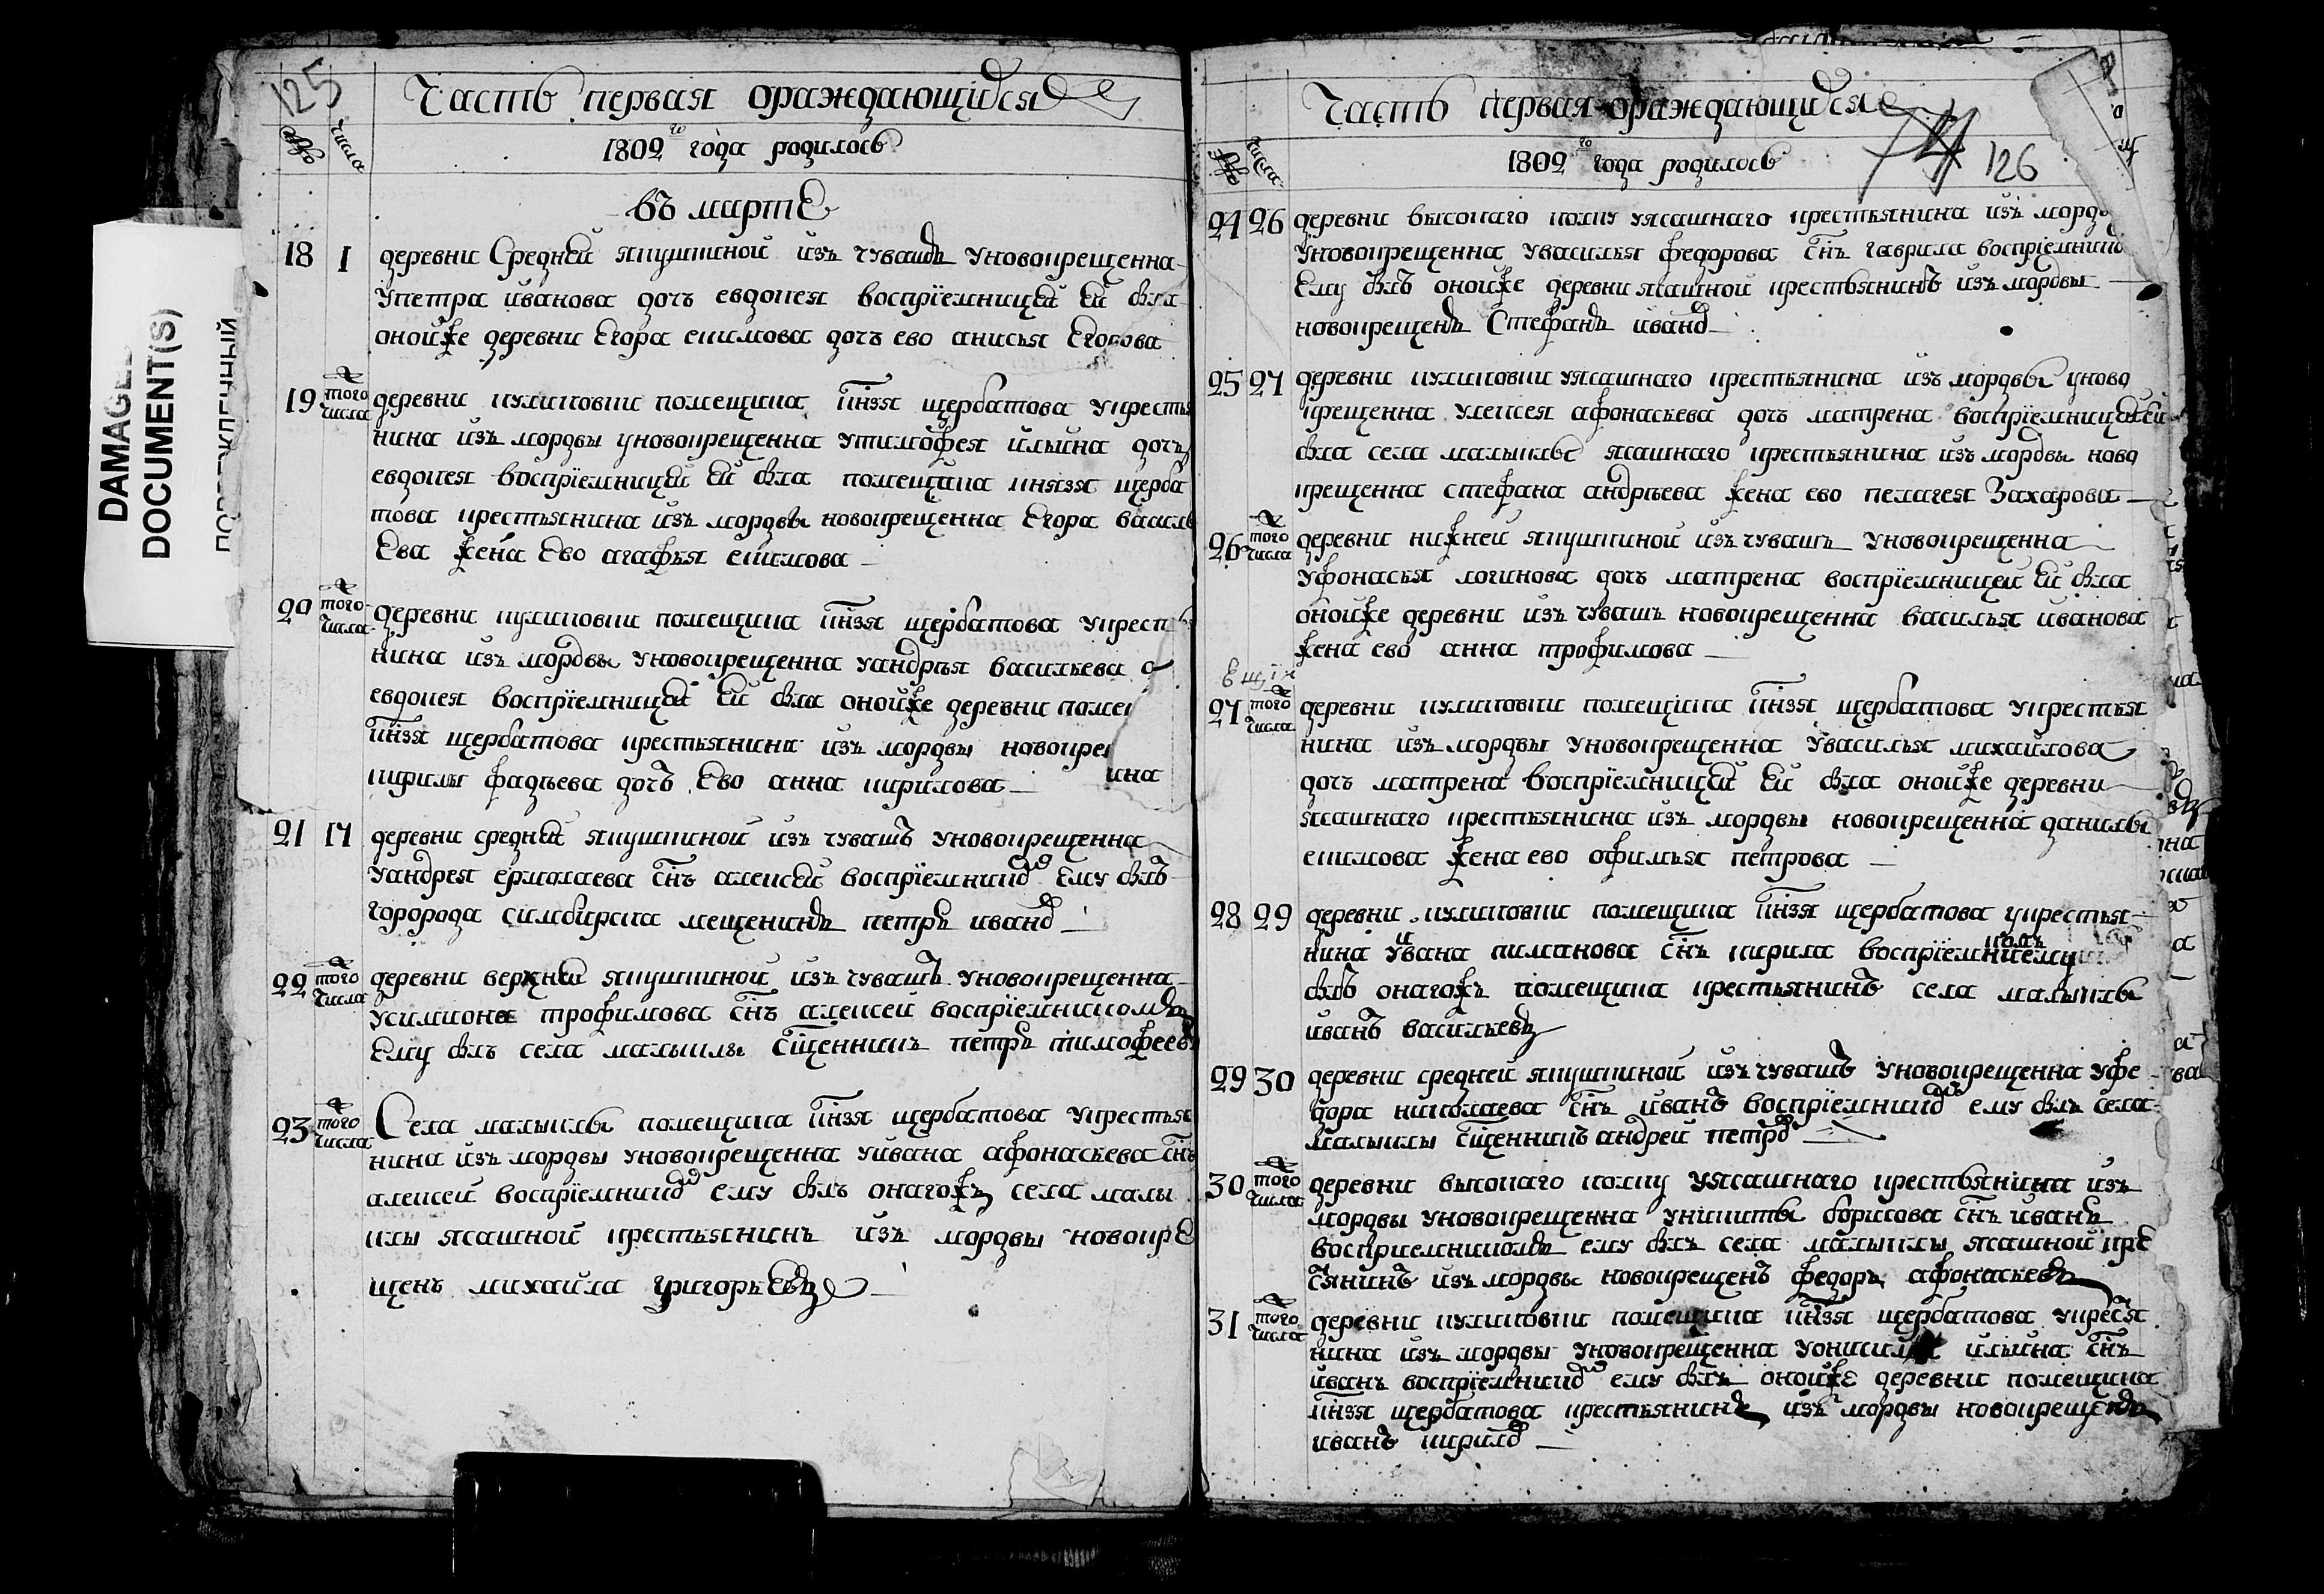 DAMAGED
DOCUMENT(S)
125
Часть первая ораждающихся
число
1802 го года родилось
въ марте
18 1 деревни Средней якушкиной изъ чувашъ уновокрещенна
упетра иванова дочь евдокея восприемницей ей была
оной же деревни Егора екимова дочь ево анисья Егорова
19 того числа деревни куликовки помещика кнзя щербатова укрестья
нина изъ мордвы уновокрещенна утимофея ильина дочь
евдокея восприемницей ей была помещика князя щерба
това крестьянина изъ мордвы новокрещенна Егора василь
Ева жена Ево агафья екимова
20 того числа деревни куликовки помещика кнзя щербатова укресть
нина изъ мордвы уновокрещенна уандрея васильева
евдокея восприемницей ей была оной же деревни поме
кнзя щербатова крестьянина изъ мордвы новокре
кирилы фадеева дочь Ево анна кирилова
21 17 деревни средней якушкиной изъ чувашъ уновокрещенна
уандрея ермолаева снъ алексей восприемникомъ Ему былъ
горорода симбирска мещенинъ петръ ивановъ
22 того числа деревни верхней якушкиной изъ чувашъ уновокрещенна
усимиона трофимова снъ алексей восприемникомъ
Ему былъ села малыклы сщенникъ петръ тимофеевъ
23 того числа Села малыклы помещика кнзя щербатова укрестья
нина изъ мордвы уновокрещенна уивана афонасьева снъ
алексей восприемникомъ ему былъ онагожъ села малы
клы ясашной крестьянинъ изъ мордвы новокре
щенъ михаила григорьевъ
Часть первая ораждающихся
74 126
числа
1802 го года родилось
24 26 деревни высокаго колку уясашнаго крестьянина изъ мордв
уновокрещенна увасилья федорова снъ гаврила восприемником
Ему былъ оной же деревни ясашной крестьянинъ изъ мордвы
новокрещенъ Стефанъ ивановъ
25 27 деревни куликовки уясашнаго крестьянина изъ мордвы уново
крещенна уелексея афонасьева дочь матрена восприемницей ей
была села малыклы ясашнаго крестьянина изъ мордвы ново
крещенна стефана андреева жена ево пелагея Захарова
26 того числа деревни нижней якушкиной изъ чувашъ уновокрещенна
уфонасья логинова дочь матрена восприемницей ей была
оной же деревни изъ чувашъ новокрещенна василья иванова
жена ево анна трофимова
27 того числа деревни куликовки помещика кнзя щербатова укрестья
нина изъ мордвы уновокрещенна увасилья михайлова
дочь матрена восприемницей ей была оной же деревни
ясашнаго крестьянина изъ мордвы новокрещенна данилы
екимова жена ево офимья петрова
28 29 деревни куликовки помещика кнзя щербатова укрестья
нина уивана пиманова снъ кирила восприемникомъ ему
былъ онагожъ помещика крестьянинъ села малыклы
иванъ васильевъ
29 30 деревни средней якушкиной изъ чувашъ уновокрещенна уфе
дора николаева снъ иванъ восприемникомъ ему былъ села
малыклы сщенникъ андрей петровъ
30 того числа деревни высокаго колку уясашнаго крестьянина изъ
мордвы уновокрещенна уникиты борисова снъ иванъ
восприемникомъ ему былъ села малыклы ясашной кре
стянинъ изъ мордвы новокрещенъ федоръ афонасьевъ
31 того числа деревни куликовки помещика кнзя щербатова укрестя
нина изъ мордвы уновокрещенна уонисима ильина снъ
иванъ восприемникомъ ему былъ оной же деревни помещика
кнзя щербатова крестьянинъ изъ мордвы новокрещенъ
иванъ кириловъ